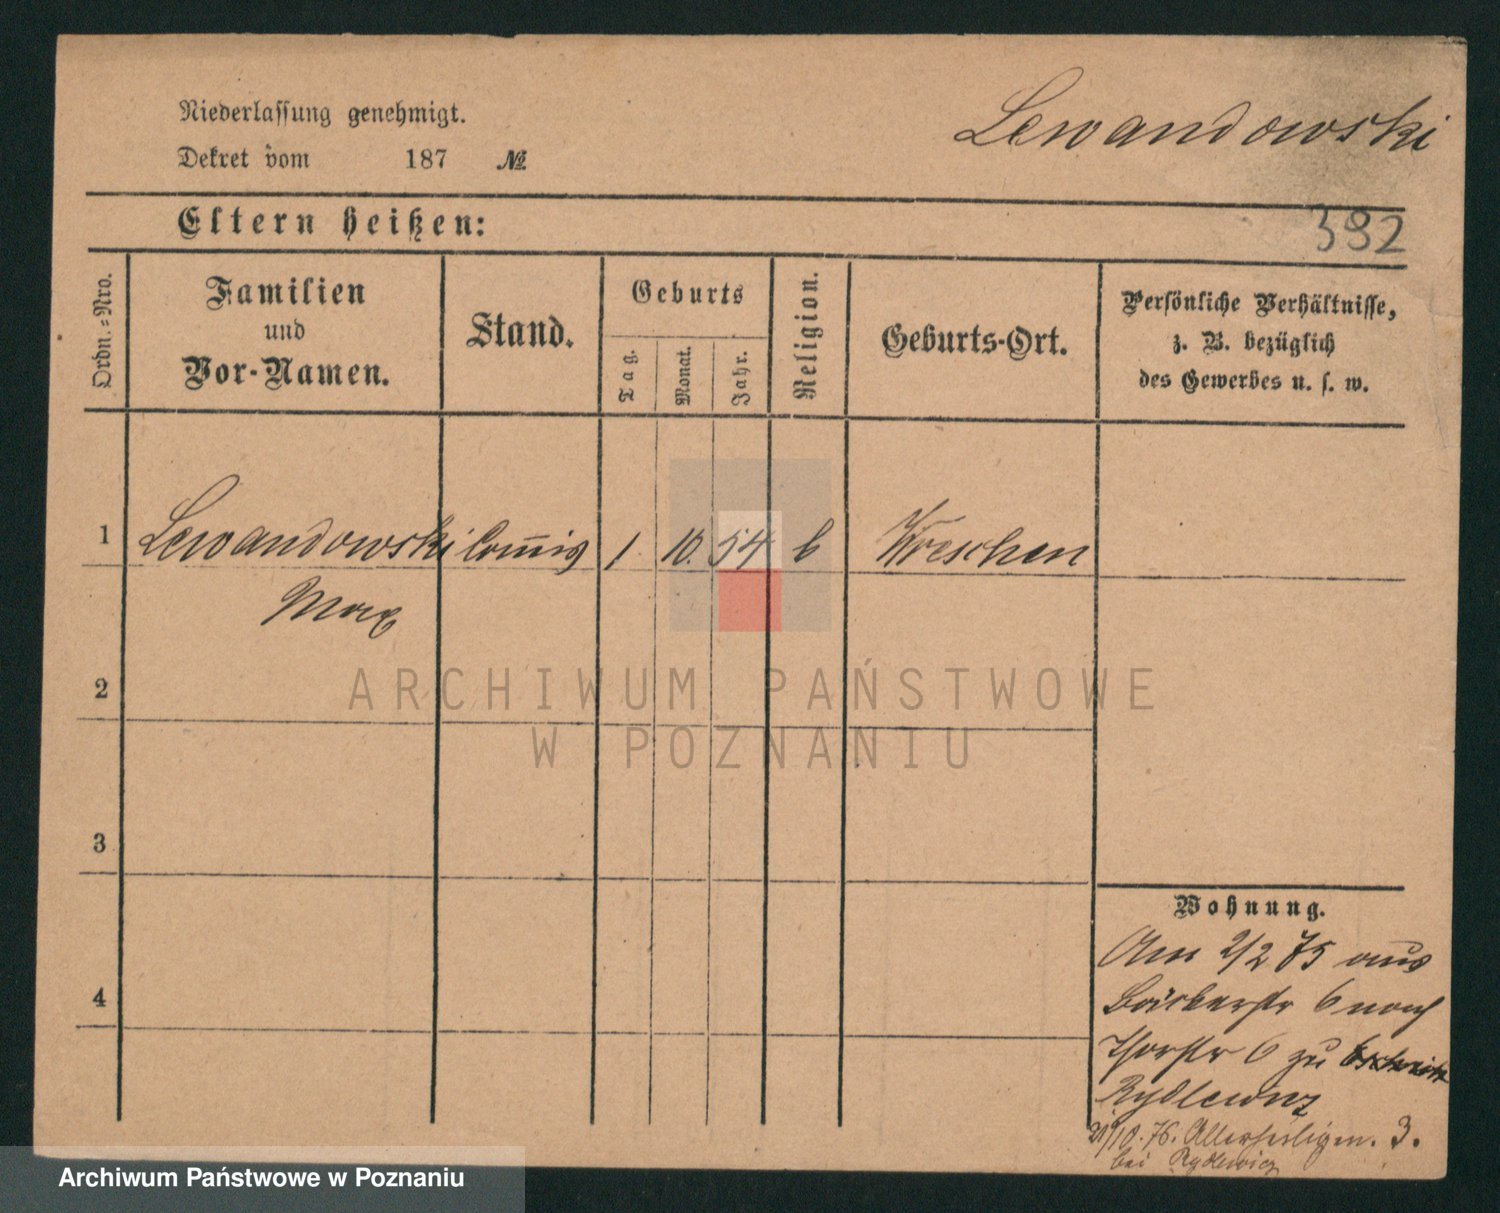 Niederlassung genehmigt.
Dekret vom 187 №
Lewandowski
Eltern heißen:
392
Ordn.-Nro.
Familien
und
Vor-Namen.
Stand.
Geburts
Tag.
Monat.
Jahr.
Religion.
Geburts-Ort.
Persönliche Verhältnisse,
z. B. bezüglich
des Gewerbes u. s. w.
1 Lewandowski Com̅is 1. 10. 54 Wreschen
Max
2
3
4
Wohnung.
Am 2/2 75 aus
Bäckerstr 6 nach
Thorstr 6 zu
Rydlewicz
21/10. 76. Allerheiligen. 3.
bei Rydlewicz
ARCHIWUM PAŃSTWOWE
W POZNANIU
Archiwum Państwowe w Poznaniu